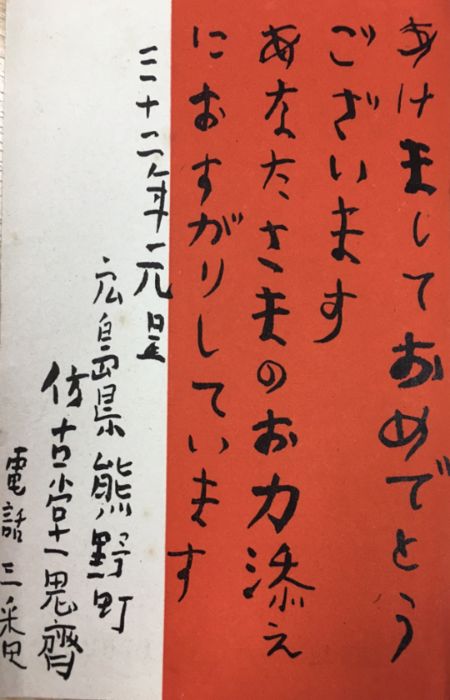 あけましておめでとう
ございます
あなたさまのお力添え
におすがりしています
三十二年元旦
広島県熊野町
仿古堂思齊
電話三番